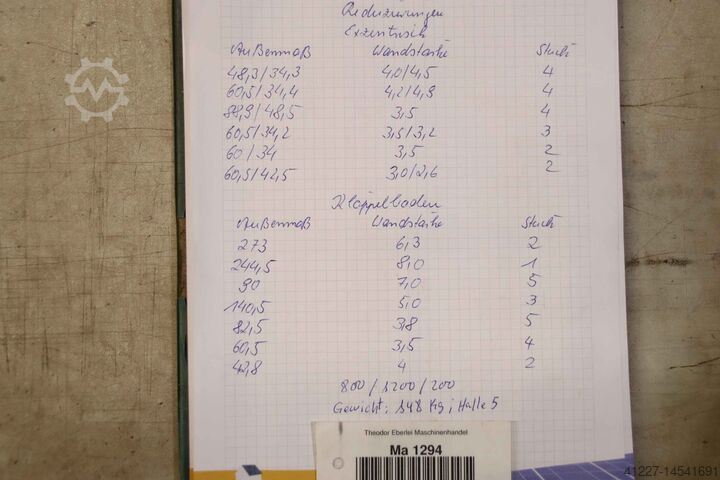 Reduzierungen
Exzentrisch
Außenmaß Wandstärke Stück
48,3/34,3 4,0/4,5 4
60,5/34,4 4,2/4,9 4
88,9/48,5 3,5 4
60,5/34,2 3,5/3,2 3
60/34 3,5 2
60,5/42,5 3,0/2,6 2
Klöpperboden
Außenmaß Wandstärke Stück
273 6,3 2
244,5 8,0 1
90 7,0 5
140,5 5,0 3
82,5 3,8 5
60,5 3,5 4
42,8 4 2
800/1200/200
Gewicht: 148 Kg; Halle 5
Theodor Eberlei Maschinenhandel
Ma 1294
41227-14541691